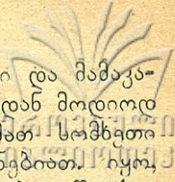 ი და მამაკა-
დან მოდიოდ
მათ სომხეთი
ნებიათ. იყო,